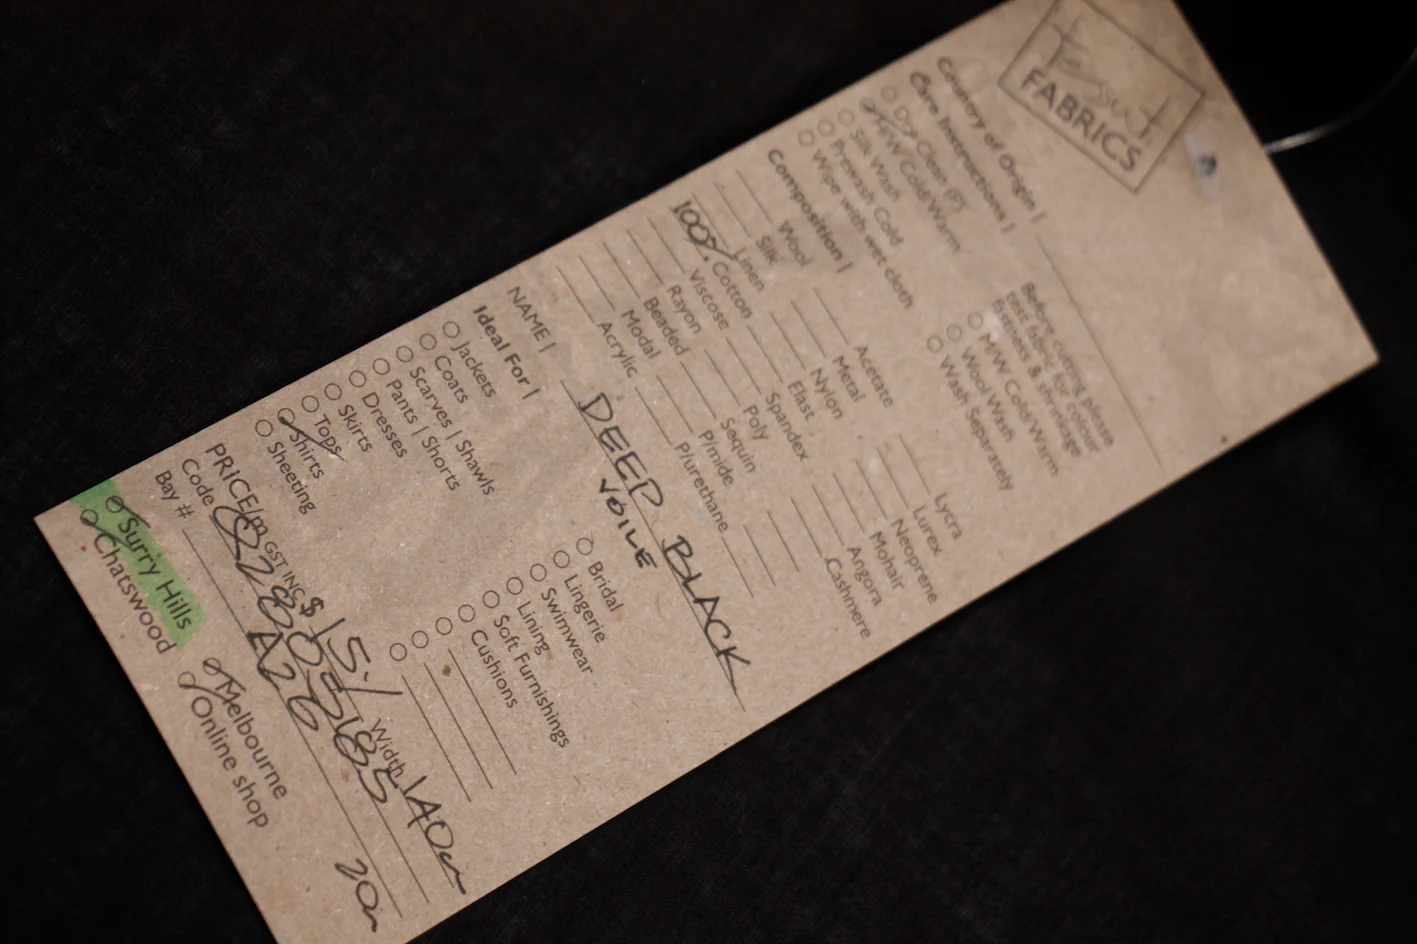 Tessuti
FABRICS
Country of Origin |
Care Instructions |
Before cutting please
test fabric for colour
fastness & shrinkage
Dry Clean (P)
H/W Cold/Warm
Silk Wash
Prewash Cold
Wipe with wet cloth
M/W Cold/Warm
Wool Wash
Wash Separately
Composition |
Wool
Silk
Linen
100% Cotton
Viscose
Rayon
Beaded
Modal
Acrylic
Acetate
Metal
Nylon
Elast
Spandex
Poly
Sequin
P/mide
P/urethane
Lycra
Lurex
Neoprene
Mohair
Angora
Cashmere
NAME | DEEP BLACK
VOILE
Ideal For |
Jackets
Coats
Scarves | Shawls
Pants | Shorts
Dresses
Skirts
Tops
Shirts
Sheeting
Bridal
Lingerie
Swimwear
Lining
Soft Furnishings
Cushions
PRICE/m GST INC $ 15./ Width 140cm
Code
Bay # A26 20m
Surry Hills
Chatswood
Melbourne
Online shop